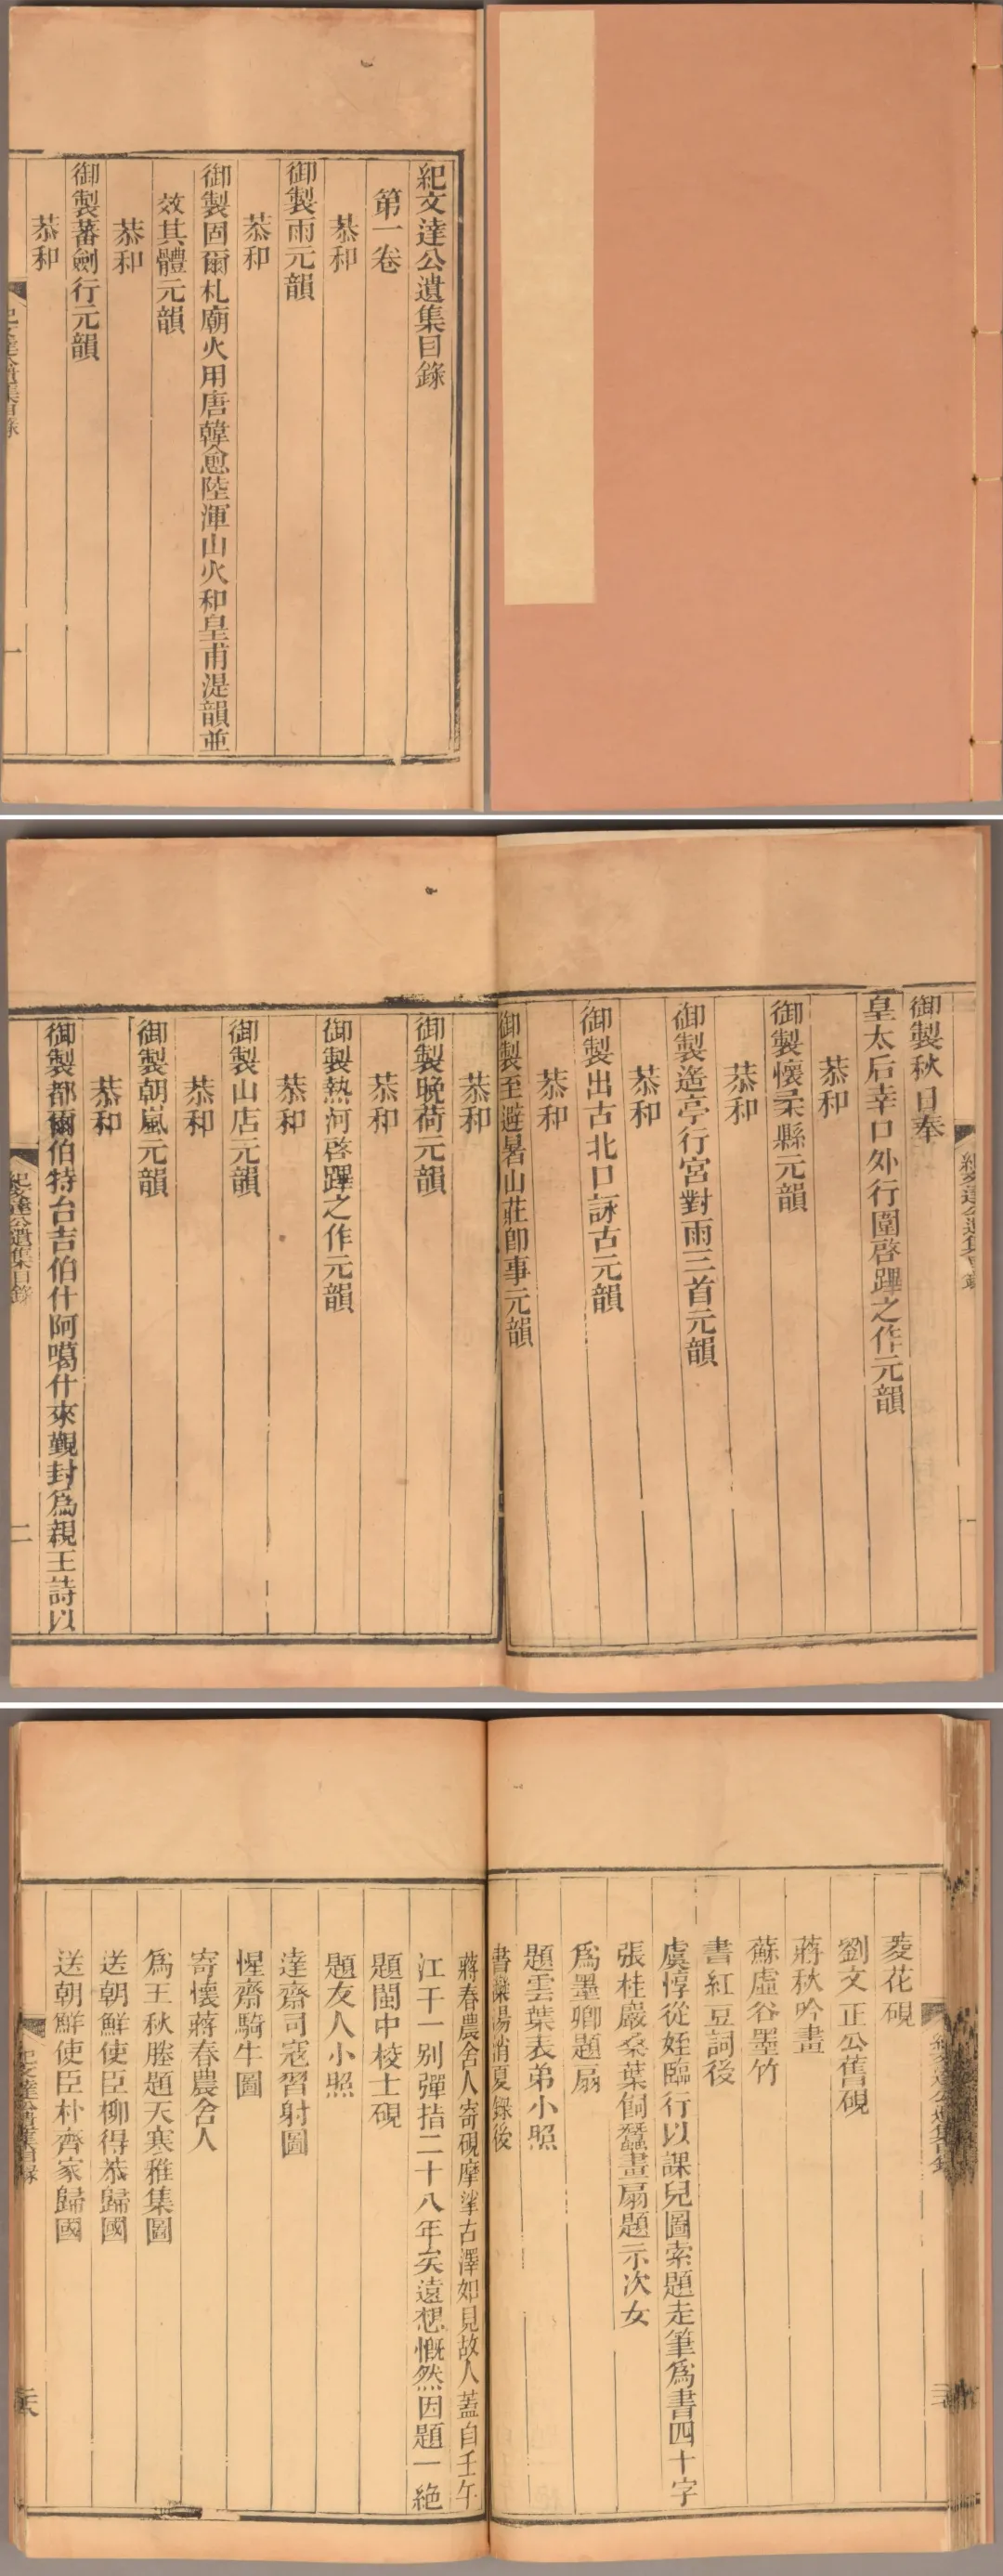 紀文達公遺集目錄
第一卷
恭和
御製雨元韻
恭和
御製固爾札廟火用唐韓愈陸渾山火和皇甫湜韻並
效其體元韻
恭和
御製蕃劍行元韻
恭和
紀文達公遺集目錄
一
紀文達公遺集目錄
一
御製秋日奉
皇太后幸口外行圍啓蹕之作元韻
恭和
御製懷柔縣元韻
恭和
御製遙亭行宮對雨三首元韻
恭和
御製出古北口詠古元韻
恭和
御製至避暑山莊卽事元韻
恭和
御製晚荷元韻
恭和
御製熱河啓蹕之作元韻
恭和
御製山店元韻
恭和
御製朝嵐元韻
恭和
御製都爾伯特台吉伯什阿噶什來覲封爲親王詩以
紀文達公遺集目錄
二
紀文達公遺集目錄
菱花硯
劉文正公舊硯
蔣秋吟畫
蘇虛谷墨竹
書紅豆詞後
虞惇從姪臨行以課兒圖索題走筆爲書四十字
張桂巖桑葉飼蠶畫扇題示次女
爲墨卿題扇
題雲葉表弟小照
書灤陽消夏錄後
蔣春農舍人寄硯摩挲古澤如見故人蓋自壬午
江干一別彈指二十八年矣遠想慨然因題一絶
題閩中校士硯
題友人小照
達齋司寇習射圖
惺齋騎牛圖
寄懷蔣春農舍人
爲王秋塍題天寒雅集圖
送朝鮮使臣柳得恭歸國
送朝鮮使臣朴齊家歸國
紀文達公遺集目錄